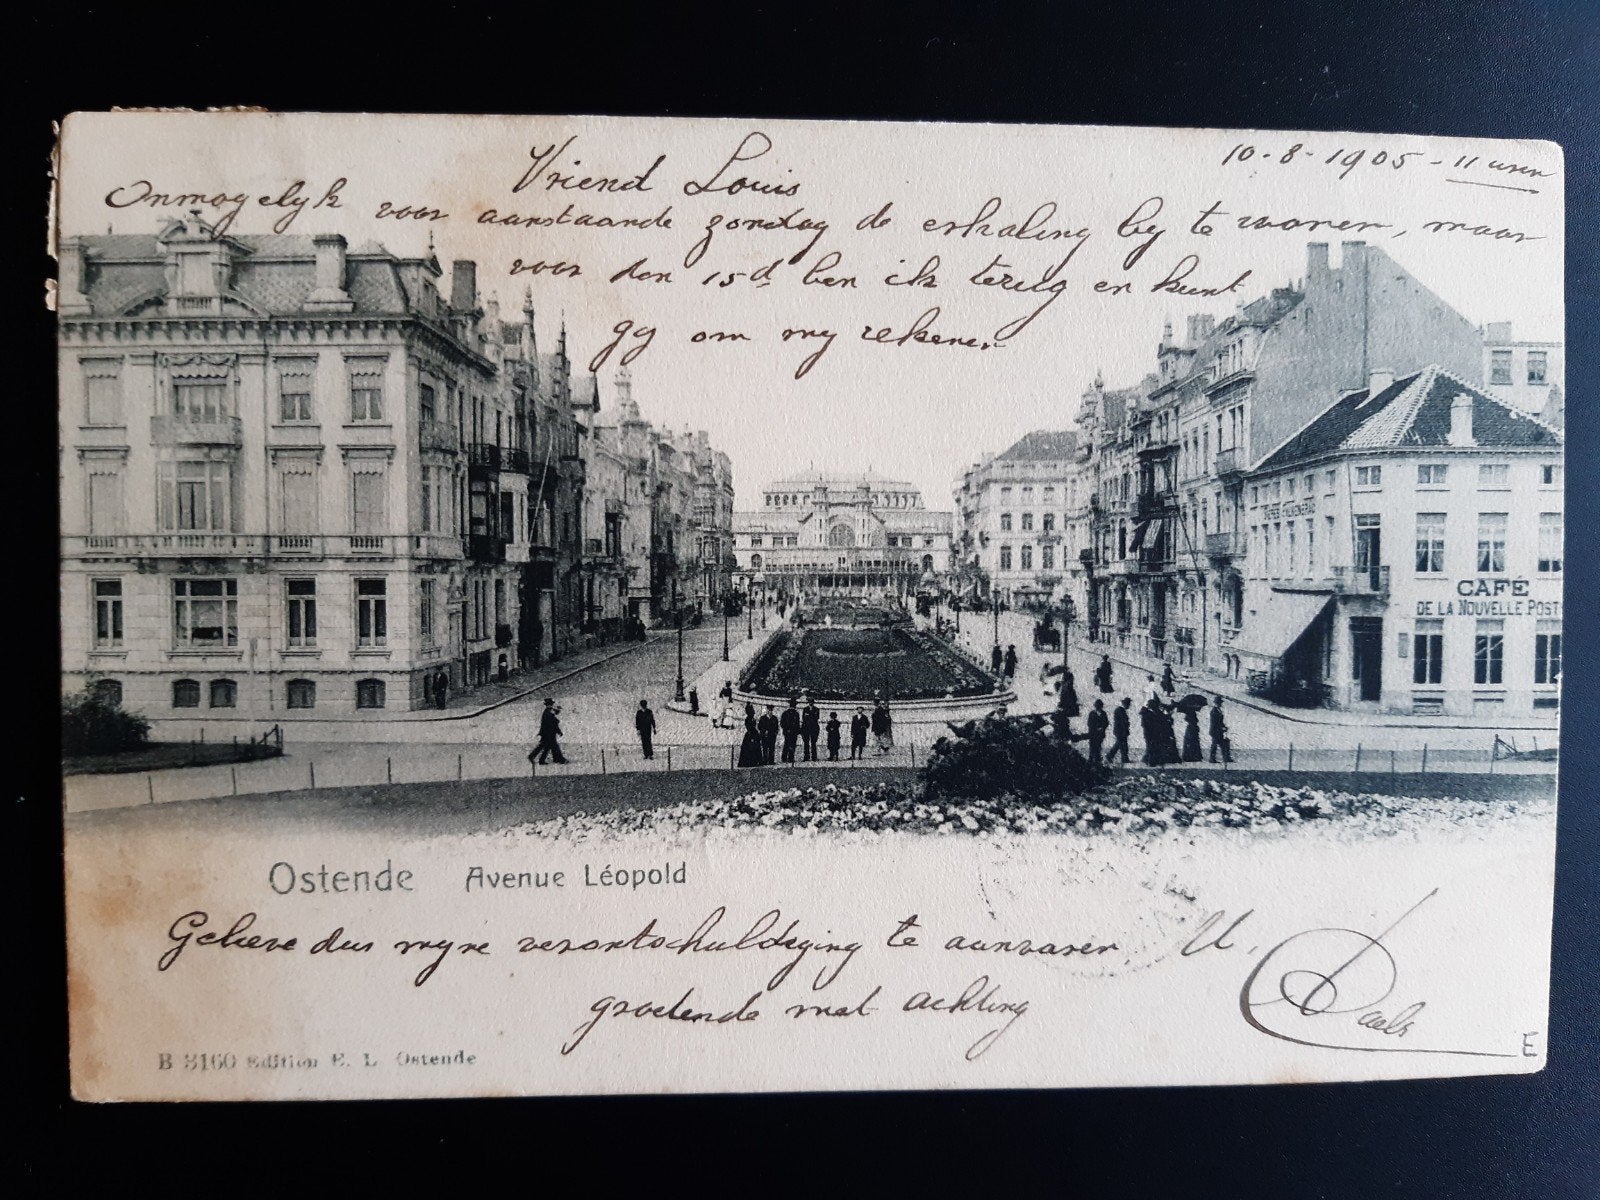 10-8-1905 - 11 uren
Vriend Louis
Onmogelyk voor aanstaande zondag de erhaling by te wonen, maar
voor den 15d ben ik terug en kunt
gy om my rekenen
CAFÉ
DE LA NOUVELLE POST
Ostende Avenue Léopold
Gelieve dus myne verontschuldiging te aanvaren, U,
groetende met achting
B 3160 Edition E. L. Ostende
E